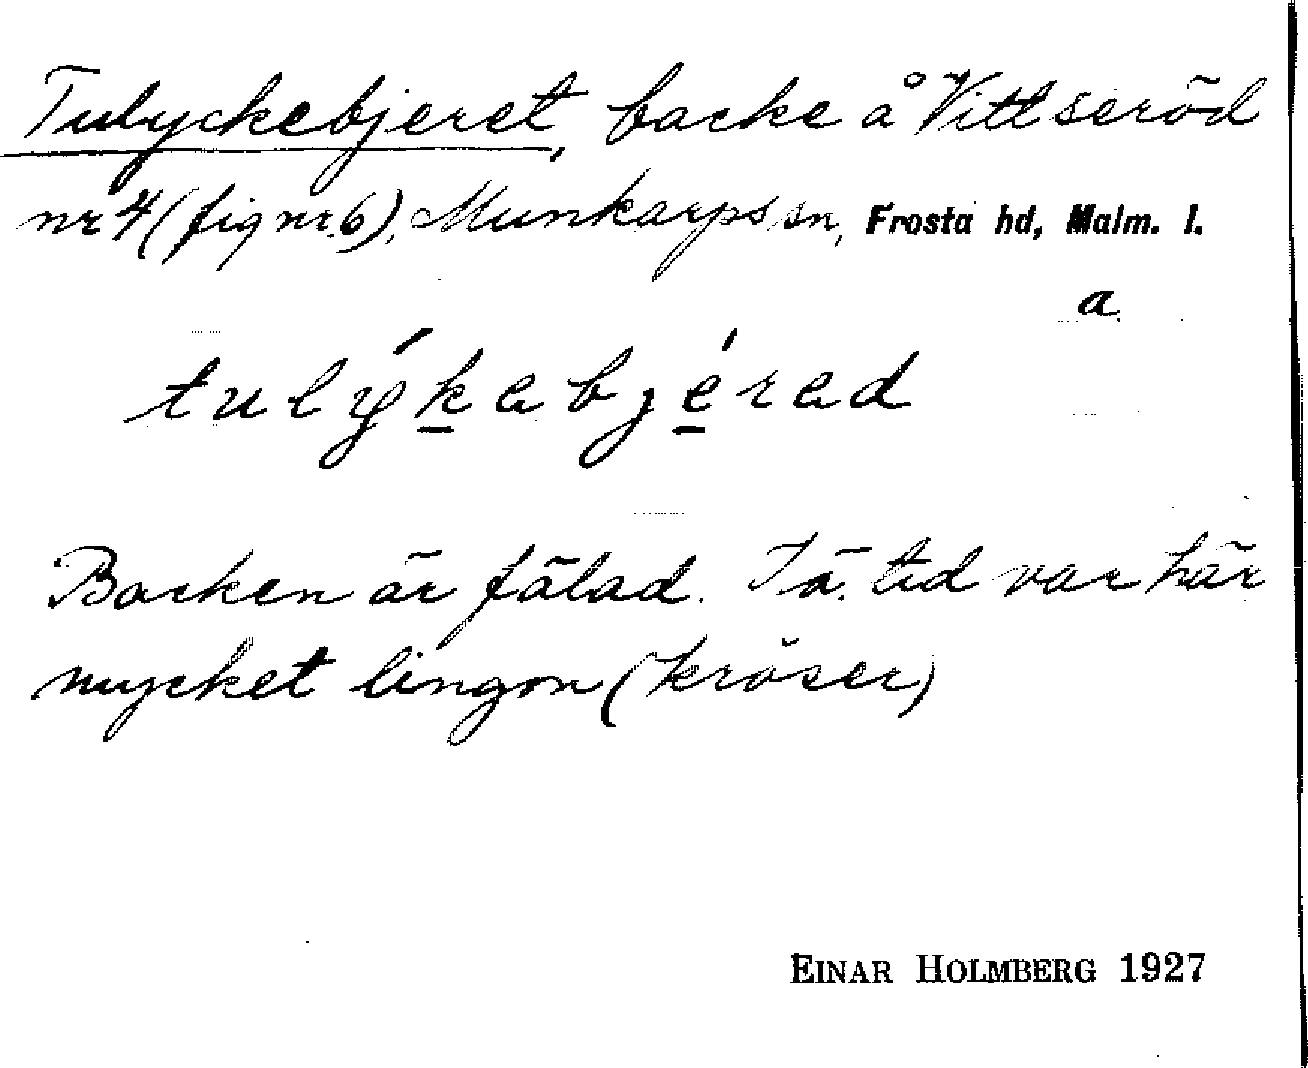 Tulyckebjeret, backe å Vittseröd
nr 4 (fig nr 6), Munkarps sn, Frosta hd, Malm. l.
a
tulýkabjérad
Backen är fälad. I ä. tid var här
mycket lingon (kröser)
EINAR HOLMBERG 1927